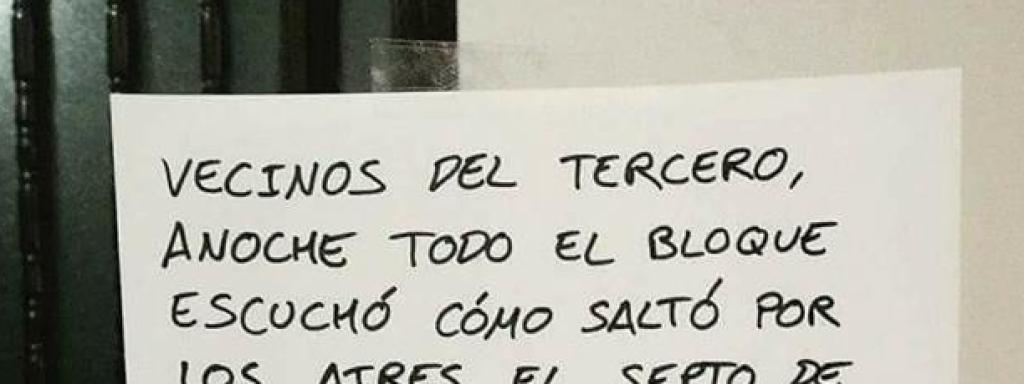 VECINOS DEL TERCERO,
ANOCHE TODO EL BLOQUE
ESCUCHÓ CÓMO SALTÓ POR
LOS AIRES EL SEPTO DE